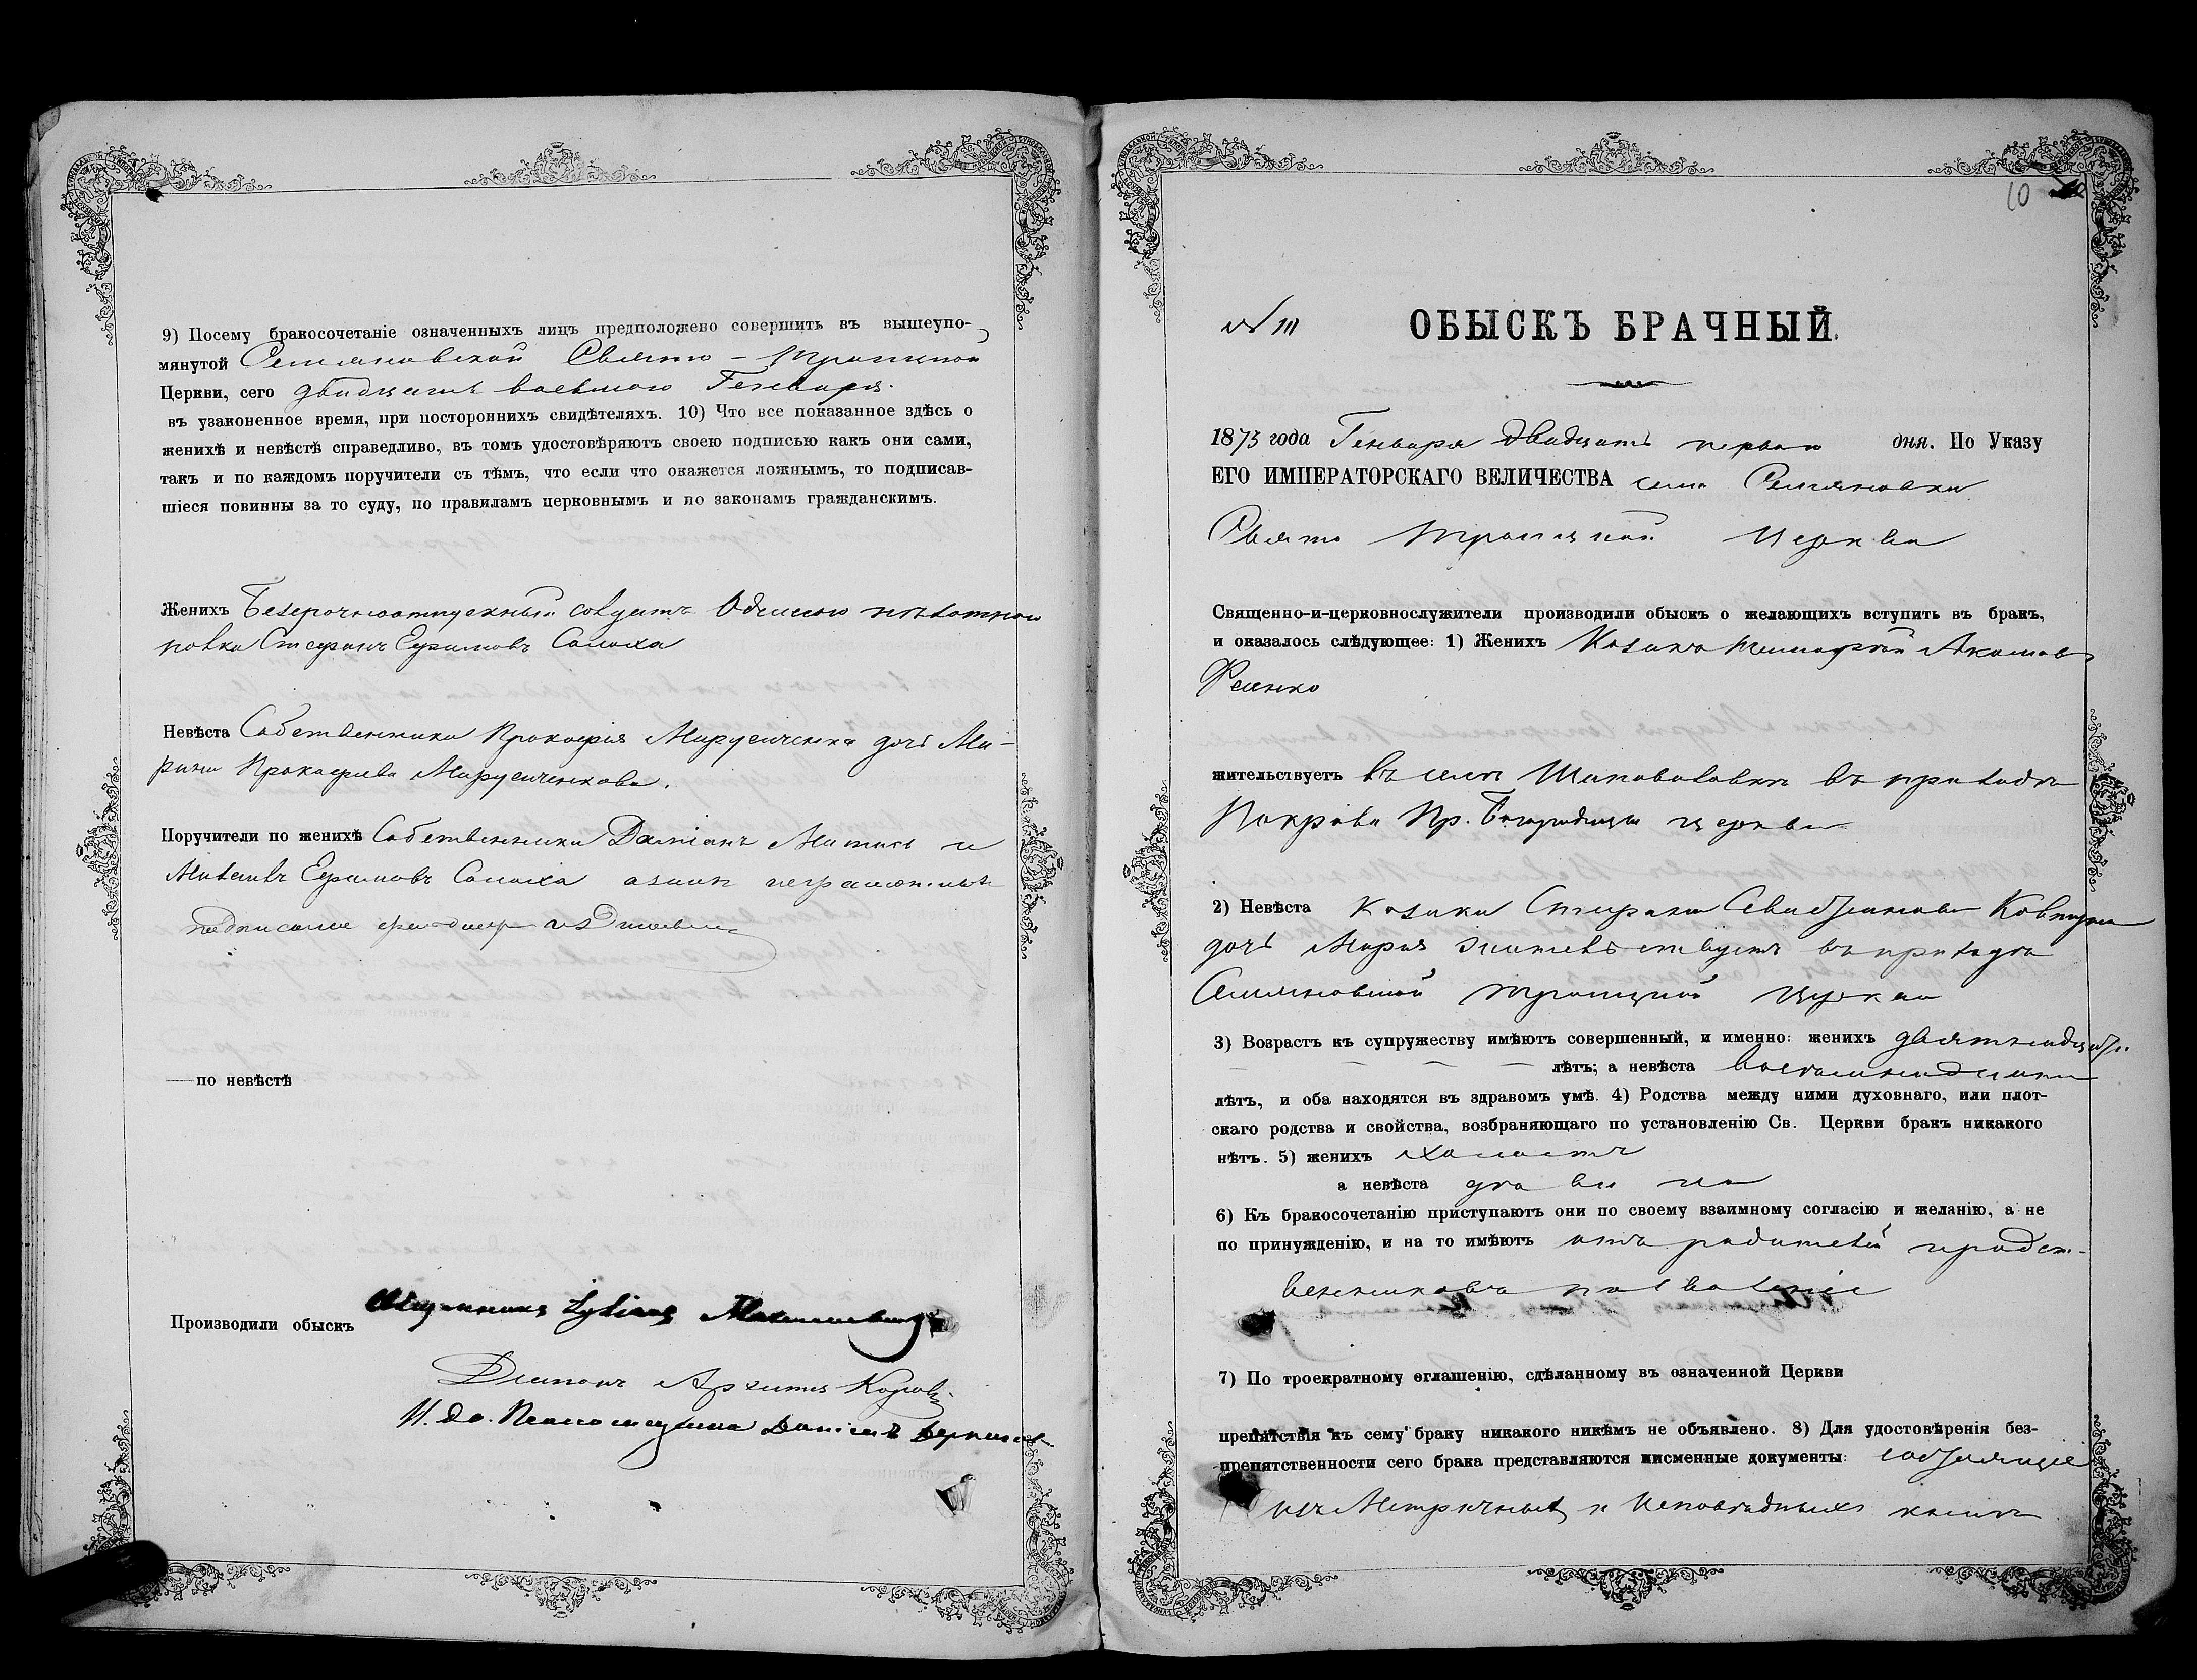 9) Посему бракосочетаніе означенныхъ лицъ предположено совершить въ вышеупо-
мянутой Семяновской Свято-Троицкой
Церкви, сего двадцать восьмого Генваря.
въ узаконенное время, при постороннихъ свидѣтеляхъ. 10) Что все показанное здѣсь о
женихѣ и невѣстѣ справедливо, въ томъ удостовѣряютъ своею подписью какъ они сами,
такъ и по каждомъ поручители съ тѣмъ, что если что окажется ложнымъ, то подписав-
шіеся повинны за то суду, по правиламъ церковнымъ и по законамъ гражданскимъ.
Женихъ
Стефанъ Ефимовъ Солоха
Невѣста Собственника Прокофія Марусиченка дочь Ма-
рина Прокофіева Марусиченкова.
Поручители по женихѣ Собственники Даміанъ и
Ефимовъ Солоха
по невѣстѣ
Производили обыскъ Священникъ
Діаконъ
И. до. Псаломщика Даніилъ
10
№ 111
ОБЫСКЪ БРАЧНЫЙ.
1873 года Генваря двадцать перваго дня. По Указу
ЕГО ИМПЕРАТОРСКАГО ВЕЛИЧЕСТВА села Семяновки
Свято Троицкой Церкви
Священно-и-церковнослужители производили обыскъ о желающихъ вступить въ бракъ,
и оказалось слѣдующее: 1) Женихъ Козакъ Тимофѣй Акимовъ
жительствуетъ въ селѣ Шаповаловкѣ въ приходѣ
Покрова Пр. Богородицы церкви
2) Невѣста Козака Стефана
дочь Марія жительствуетъ въ приходѣ
Семяновской Троицкой Церкви
3) Возрастъ къ супружеству имѣютъ совершенный, и именно: женихъ девятнадцати
лѣтъ; а невѣста восемнадцати
лѣтъ, и оба находятся въ здравомъ умѣ. 4) Родства между ними духовнаго, или плот-
скаго родства и свойства, возбраняющаго по установленію Св. Церкви бракъ никакого
нѣтъ. 5) женихъ холостъ
а невѣста дѣвица
6) Къ бракосочетанію приступаютъ они по своему взаимному согласію и желанію, а не
по принужденію, и на то имѣютъ отъ родителей и родст-
венниковъ позволеніе
7) По троекратному оглашенію, сдѣланному въ означенной Церкви
препятствія къ сему браку никакого никѣмъ не объявлено. 8) Для удостовѣренія без-
препятственности сего брака представляются письменные документы:
изъ Метричныхъ и Исповѣдныхъ книгъ